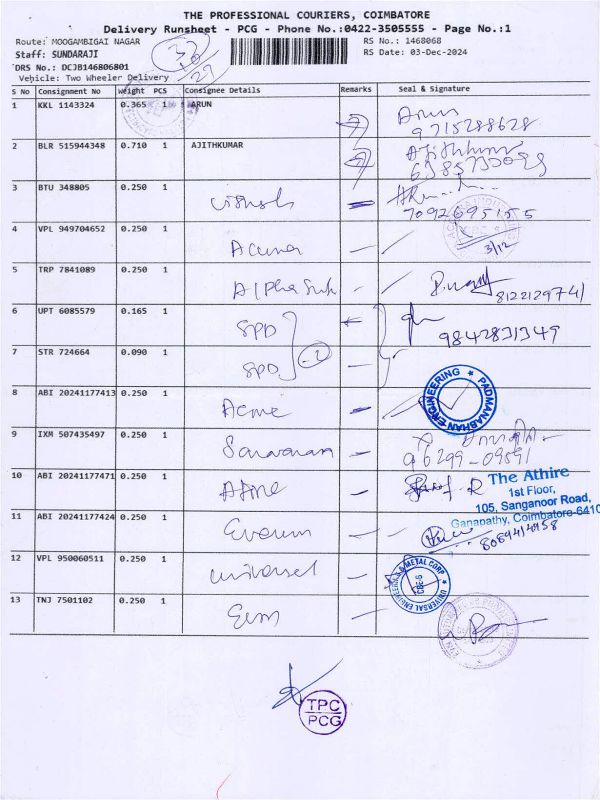 THE PROFESSIONAL COURIERS, COIMBATORE
Delivery Runsheet - PCG - Phone No.:0422-3505555 - Page No.:1
Route: MOOGAMBIGAI NAGAR
RS No.: 1468068
Staff: SUNDARAJI
RS Date: 03-Dec-2024
DRS No.: DCJB146806801
Vehicle: Two Wheeler Delivery
27
S No Consignment No Weight PCS Consignee Details Remarks Seal & Signature
1 KKL 1143324 0.365 1 ARUN
Arun
9715288628
2 BLR 515944348 0.710 1 AJITHKUMAR
Ajithkumar
3 BTU 348805 0.250 1
7092695155
4 VPL 949704652 0.250 1
3/12
5 TRP 7841089 0.250 1
8122129741
6 UPT 6085579 0.165 1 SPD
9842831349
7 STR 724664 0.090 1 SPD
8 ABI 20241177413 0.250 1 Acme
PADMANABHAN ENGINEERING
9 IXM 507435497 0.250 1 Saravanan
96299-09591
10 ABI 20241177471 0.250 1
The Athire
1st Floor,
105, Sanganoor Road,
Ganapathy, Coimbatore-6410
11 ABI 20241177424 0.250 1
8089414958
12 VPL 950060511 0.250 1 universal
UNIVERSAL ENGINEERS & METAL CORP
13 TNJ 7501102 0.250 1
TPC
PCG